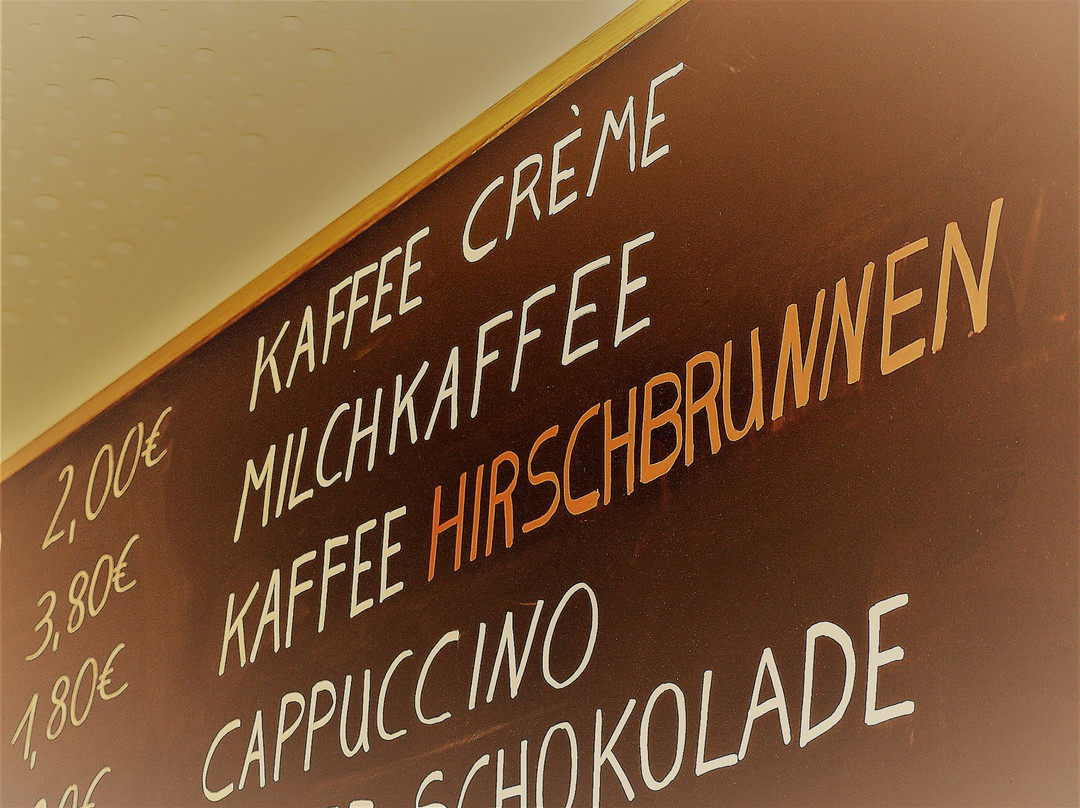 2,00€ KAFFEE CRÈME
3,80€ MILCHKAFFEE
1,80€ KAFFEE HIRSCHBRUNNEN
CAPPUCCINO
SCHOKOLADE